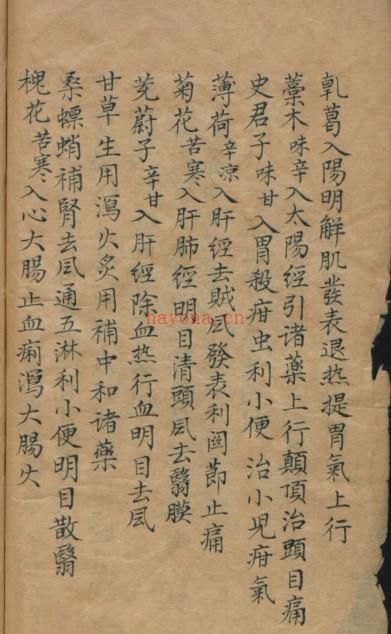 乹葛入陽明解肌發表退热提胃氣上行
藁木味辛入太陽經引诸藥上行顛頂治頭目痛
史君子味甘入胃殺疳虫利小便治小児疳氣
薄荷辛凉入肝經去贼凨發表利関節止痛
菊花苦寒入肝肺經明目清頭凨去翳膜
茺蔚子辛甘入肝經降血热行血明目去凨
甘草生用瀉火炙用補中和诸藥
桑螵蛸補腎去凨通五淋利小便明目散翳
槐花苦寒入心大腸止血痢瀉大腸火
nayona.cn